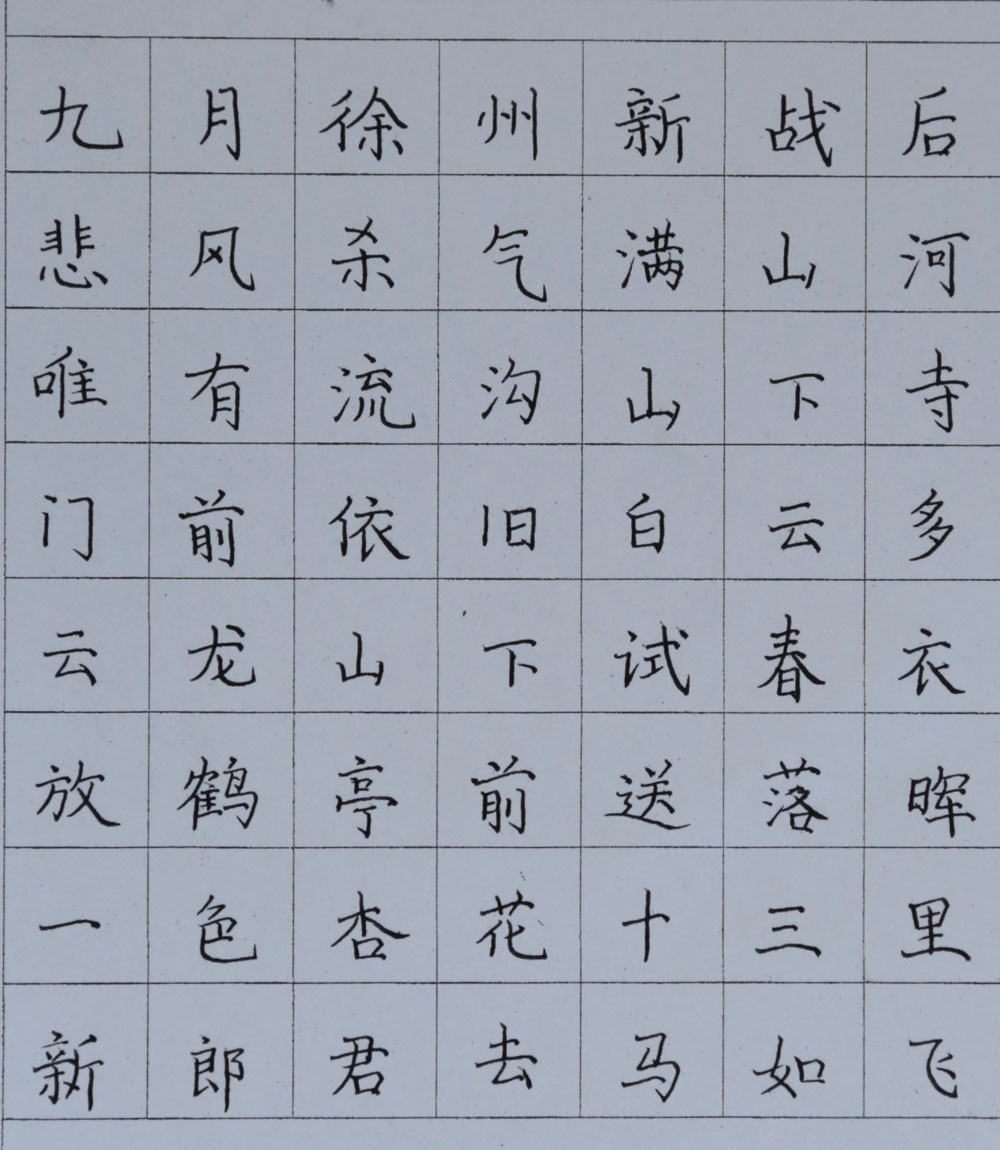 九月徐州新战后
悲风杀气满山河
唯有流沟山下寺
门前依旧白云多
云龙山下试春衣
放鹤亭前送落晖
一色杏花十三里
新郎君去马如飞